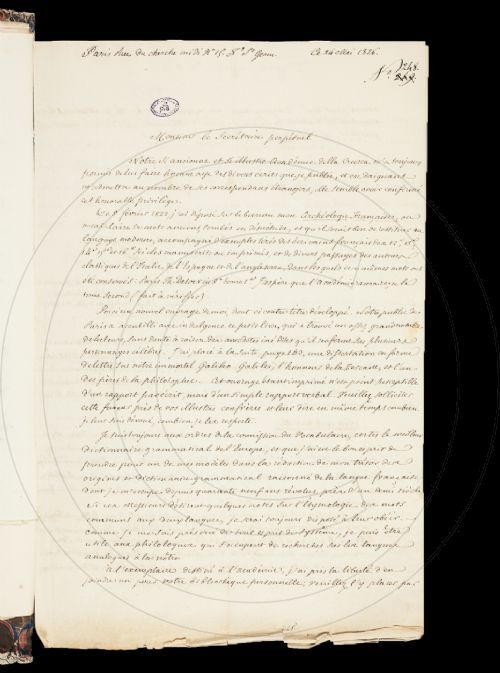 Paris Rue du cherche midi N° 15. F. St Germ. Ce 24 Mai 1826.
N° 248.
Monsieur le Secrétaire perpétuel
Notre Mansionar et l'illustre Académie della Crusca m'a toujours
permis de lui faire hommage des divers écrits que je publie, et en daignant
m'admettre au nombre de ses correspondans étrangers, elle semble avoir confirmé
cet honorable privilège.
Le 8 février 1822, j'ai déposé sur le bureau mon Archéologie Française, ou
vocabulaire de mots anciens tombés en désuétude, et qu'il serait bon de restituer au
langage moderne, accompagné d'exemples tirés des écrivains français des
manuscrits ou imprimés, et de divers passages des auteurs
classiques de l'Italie, de l'Espagne et de l'angleterre, dans lesquels ces mêmes mots ont
été conservés. Paris. J'espère que l'académie
tome second
Voici un nouvel ouvrage de moi, dont ci contre titre développé. Notre public de
Paris a accueilli avec indulgence ce petit livre, qui a trouvé un assez grand nombre
de lecteurs, sans doute à raison des anecdotes inédites qu'il renferme sur plusieurs
personnages célèbres. J'ai placé à la suite, page 180, une dissertation en forme
de lettre sur notre immortel Galileo Galilei, l'honneur de la Toscane, et l'un
des pères de la philosophie. Cet ouvrage étant imprimé n'est point susceptible
d'un rapport par écrit, mais d'un simple rapport verbal. Veuillez solliciter
cette faveur près de vos illustres confrères et leur dire en même temps combien
je leur suis dévoué, combien je les respecte.
Je suis toujours aux ordres de la commission du Vocabulaire, certes le meilleur
dictionnaire grammatical de l'Europe, et que j'ai eu le bon esprit de
prendre pour un de mes modèles dans la rédaction de mon trésor des
origines et dictionnaire grammatical raisonné de la langue française
dont je m'occupe depuis quarante neuf ans révolus, près d'un demi siècle.
Si ces messieurs désirent quelques notes sur l'étymologie des mots
communs aux deux langues, je serai toujours disposé à leur obéir.
comme je me tais près ou de tout esprit de système, je puis être
utile aux philologues qui s'occupent de recherches sur les langues
analogues à la nôtre.
à l'exemplaire destiné à l'académie, j'ai pris la liberté d'en
joindre un pour votre bibliothèque personnelle; veuillez l'y placer par